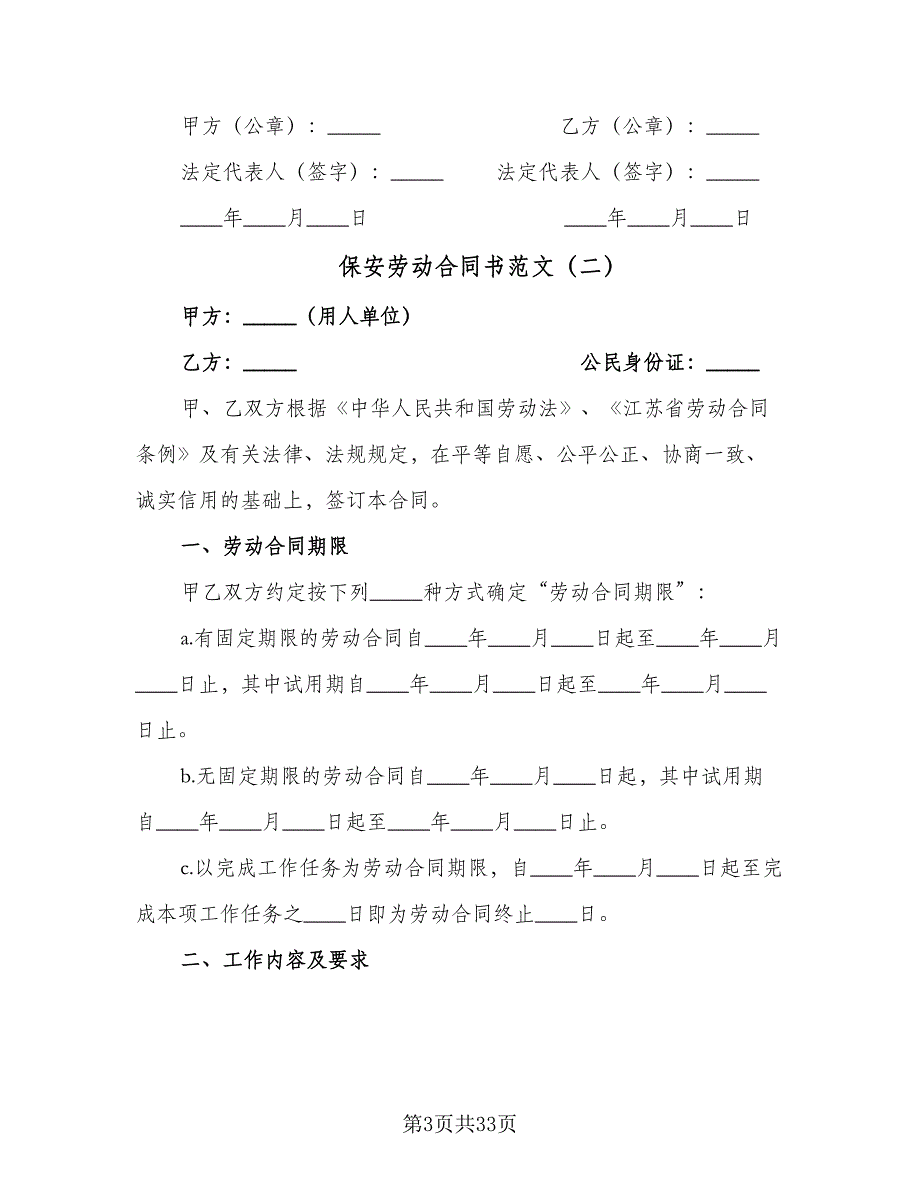 甲方（公章）：_____ 乙方（公章）：_____
法定代表人（签字）：_____ 法定代表人（签字）：_____
____年____月____日 ____年____月____日
保安劳动合同书范文（二）
甲方：_____（用人单位）
乙方：_____ 公民身份证：_____
甲、乙双方根据《中华人民共和国劳动法》、《江苏省劳动合同
条例》及有关法律、法规规定，在平等自愿、公平公正、协商一致、
诚实信用的基础上，签订本合同。
一、劳动合同期限
甲乙双方约定按下列_____种方式确定“劳动合同期限”：
a.有固定期限的劳动合同自____年____月____日起至____年____月
____日止，其中试用期自____年____月____日起至____年____月____
日止。
b.无固定期限的劳动合同自____年____月____日起，其中试用期
自____年____月____日起至____年____月____日止。
c.以完成工作任务为劳动合同期限，自____年____月____日起至完
成本项工作任务之____日即为劳动合同终止____日。
二、工作内容及要求
第3页共33页